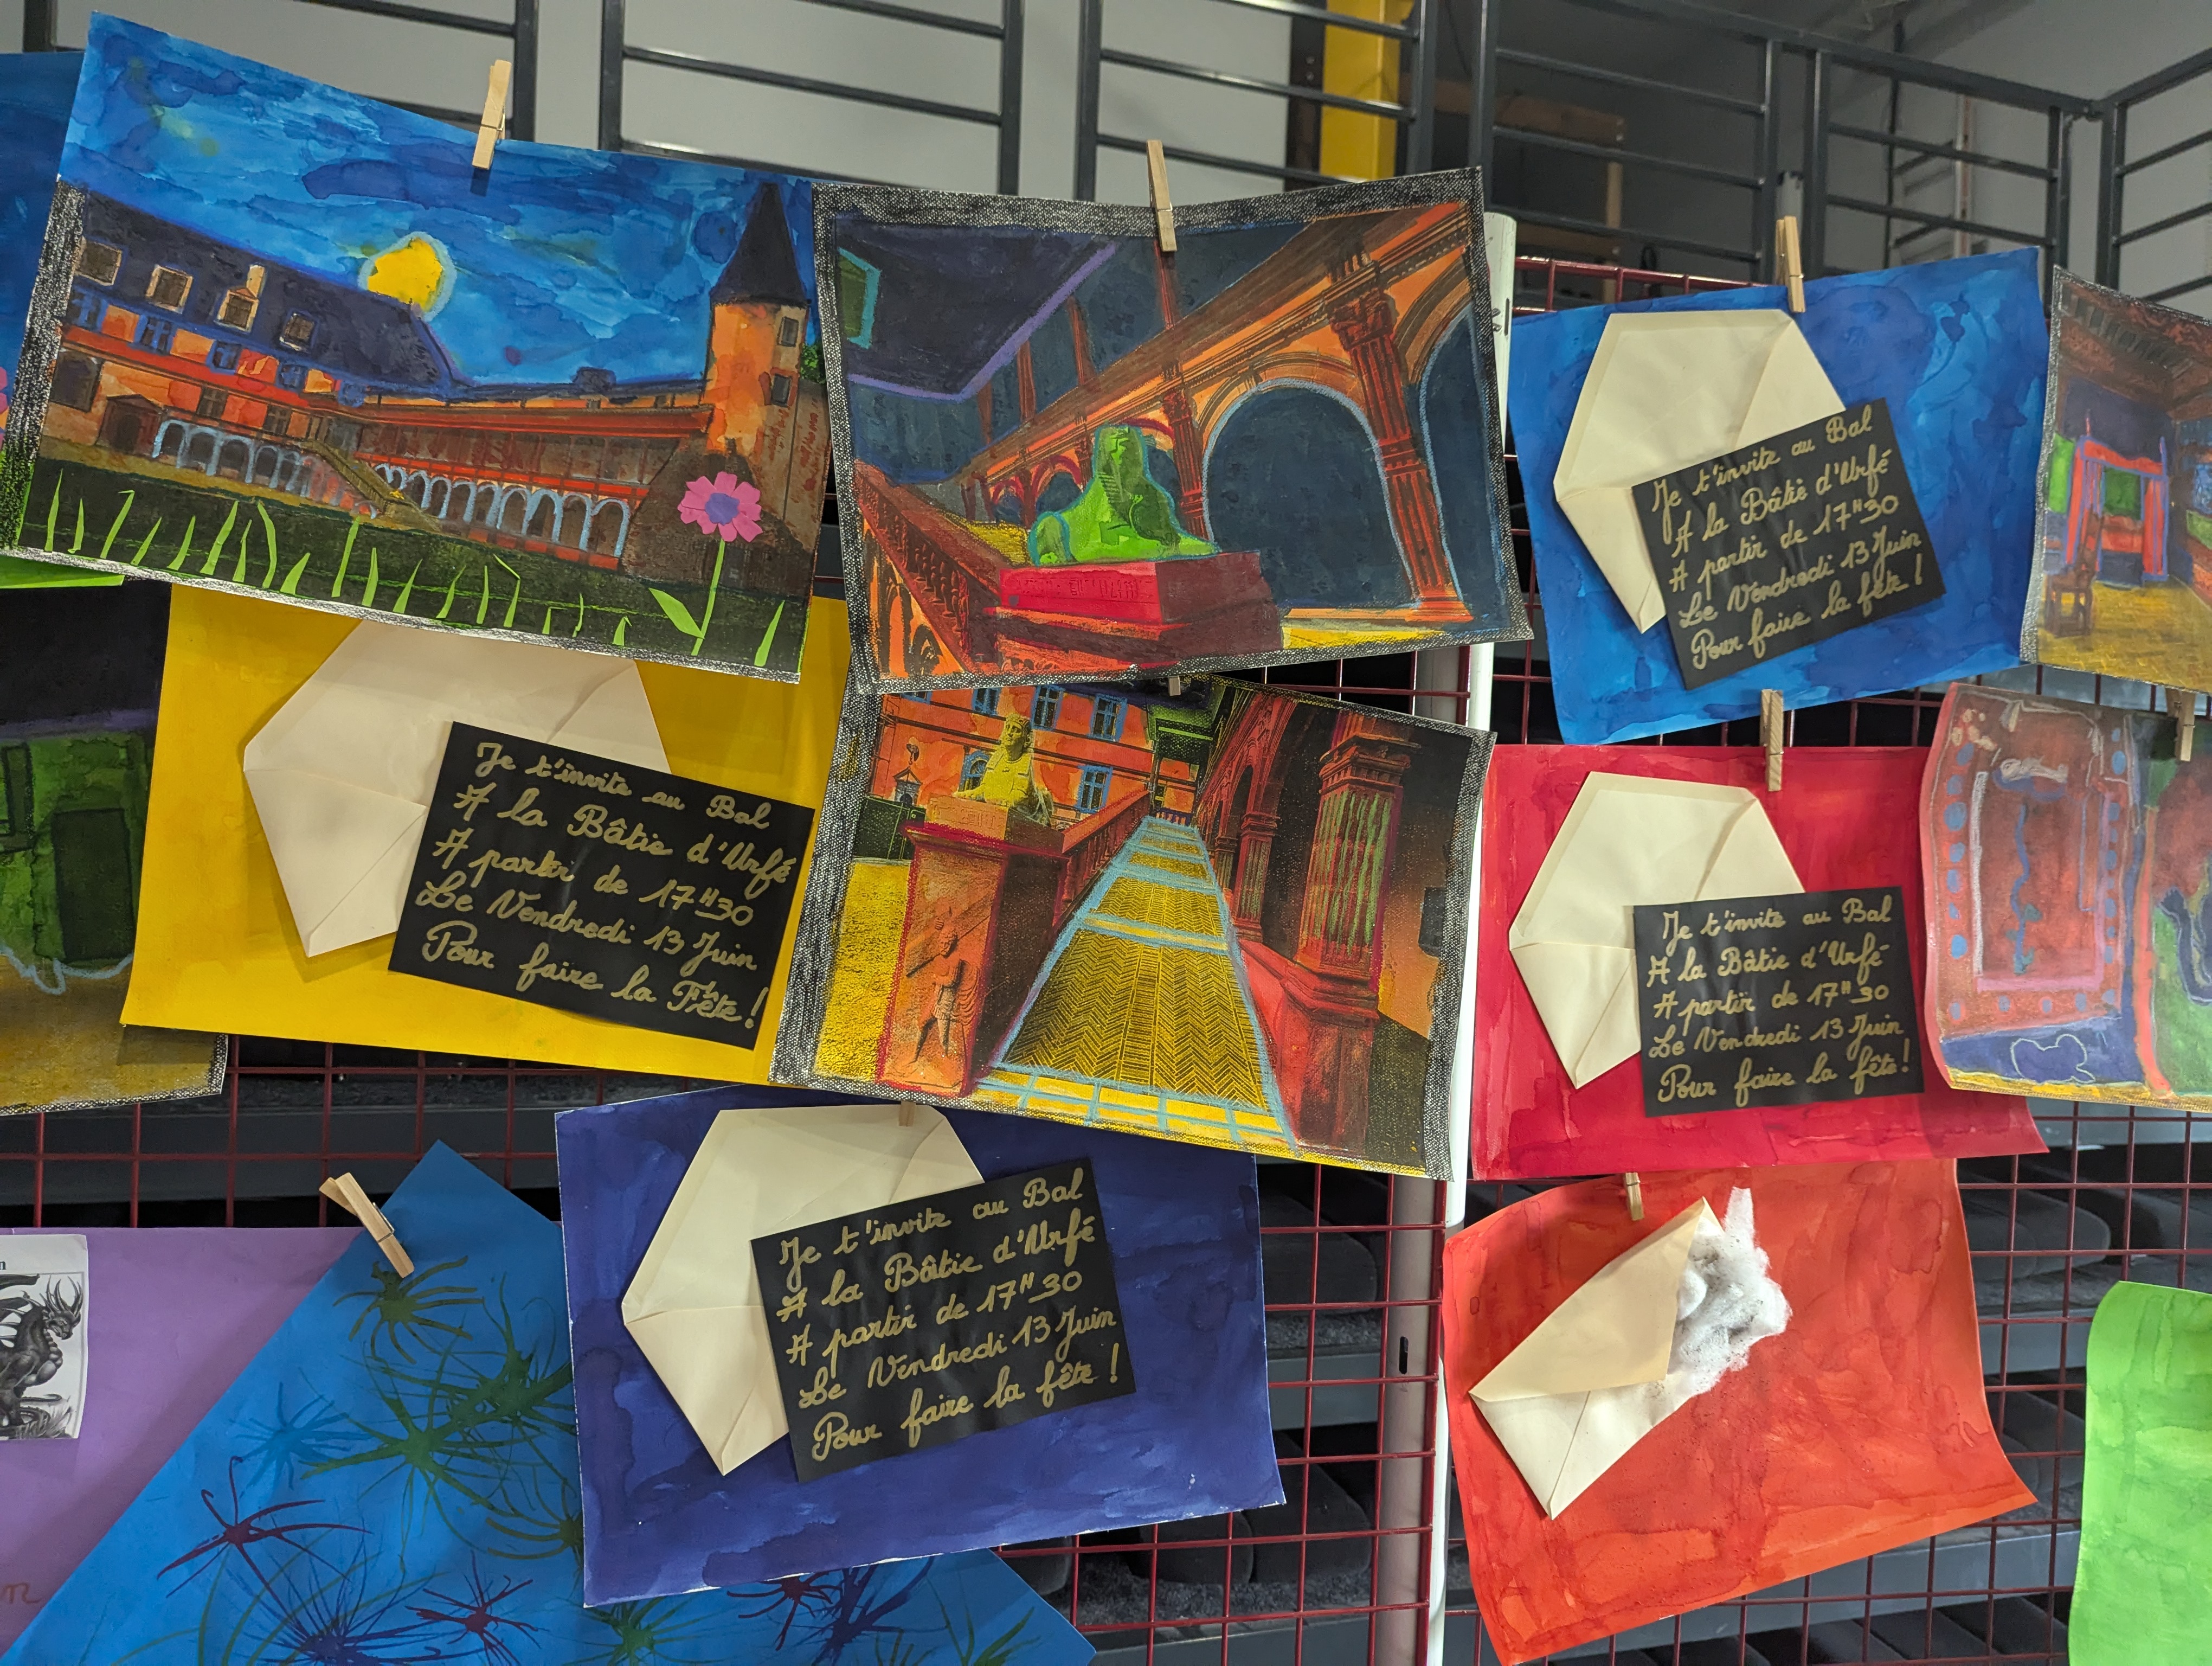 Je t'invite au Bal
A la Bâtie d'Urfé
A partir de 17H30
Le Vendredi 13 Juin
Pour faire la fête !
Je t'invite au Bal
A la Bâtie d'Urfé
A partir de 17H30
Le Vendredi 13 Juin
Pour faire la Fête !
Je t'invite au Bal
A la Bâtie d'Urfé
A partir de 17H30
Le Vendredi 13 Juin
Pour faire la fête !
Je t'invite au Bal
A la Bâtie d'Urfé
A partir de 17H30
Le Vendredi 13 Juin
Pour faire la fête !